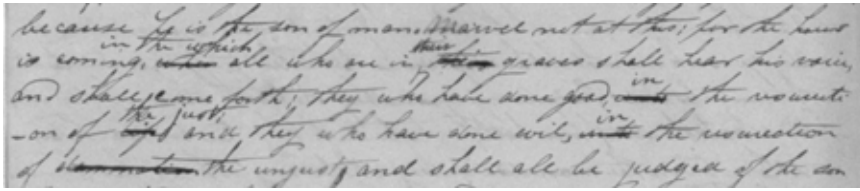 because he is the son of man. Marvel not at this; for the hour
is coming, in the which when all who are in their their graves shall hear his voice,
and shall come forth; they who have done good, in unto the resurecti
-on of the just, life, and they who have done evil, in unto the resurrection
of damnation the unjust, and shall all be judged of the son